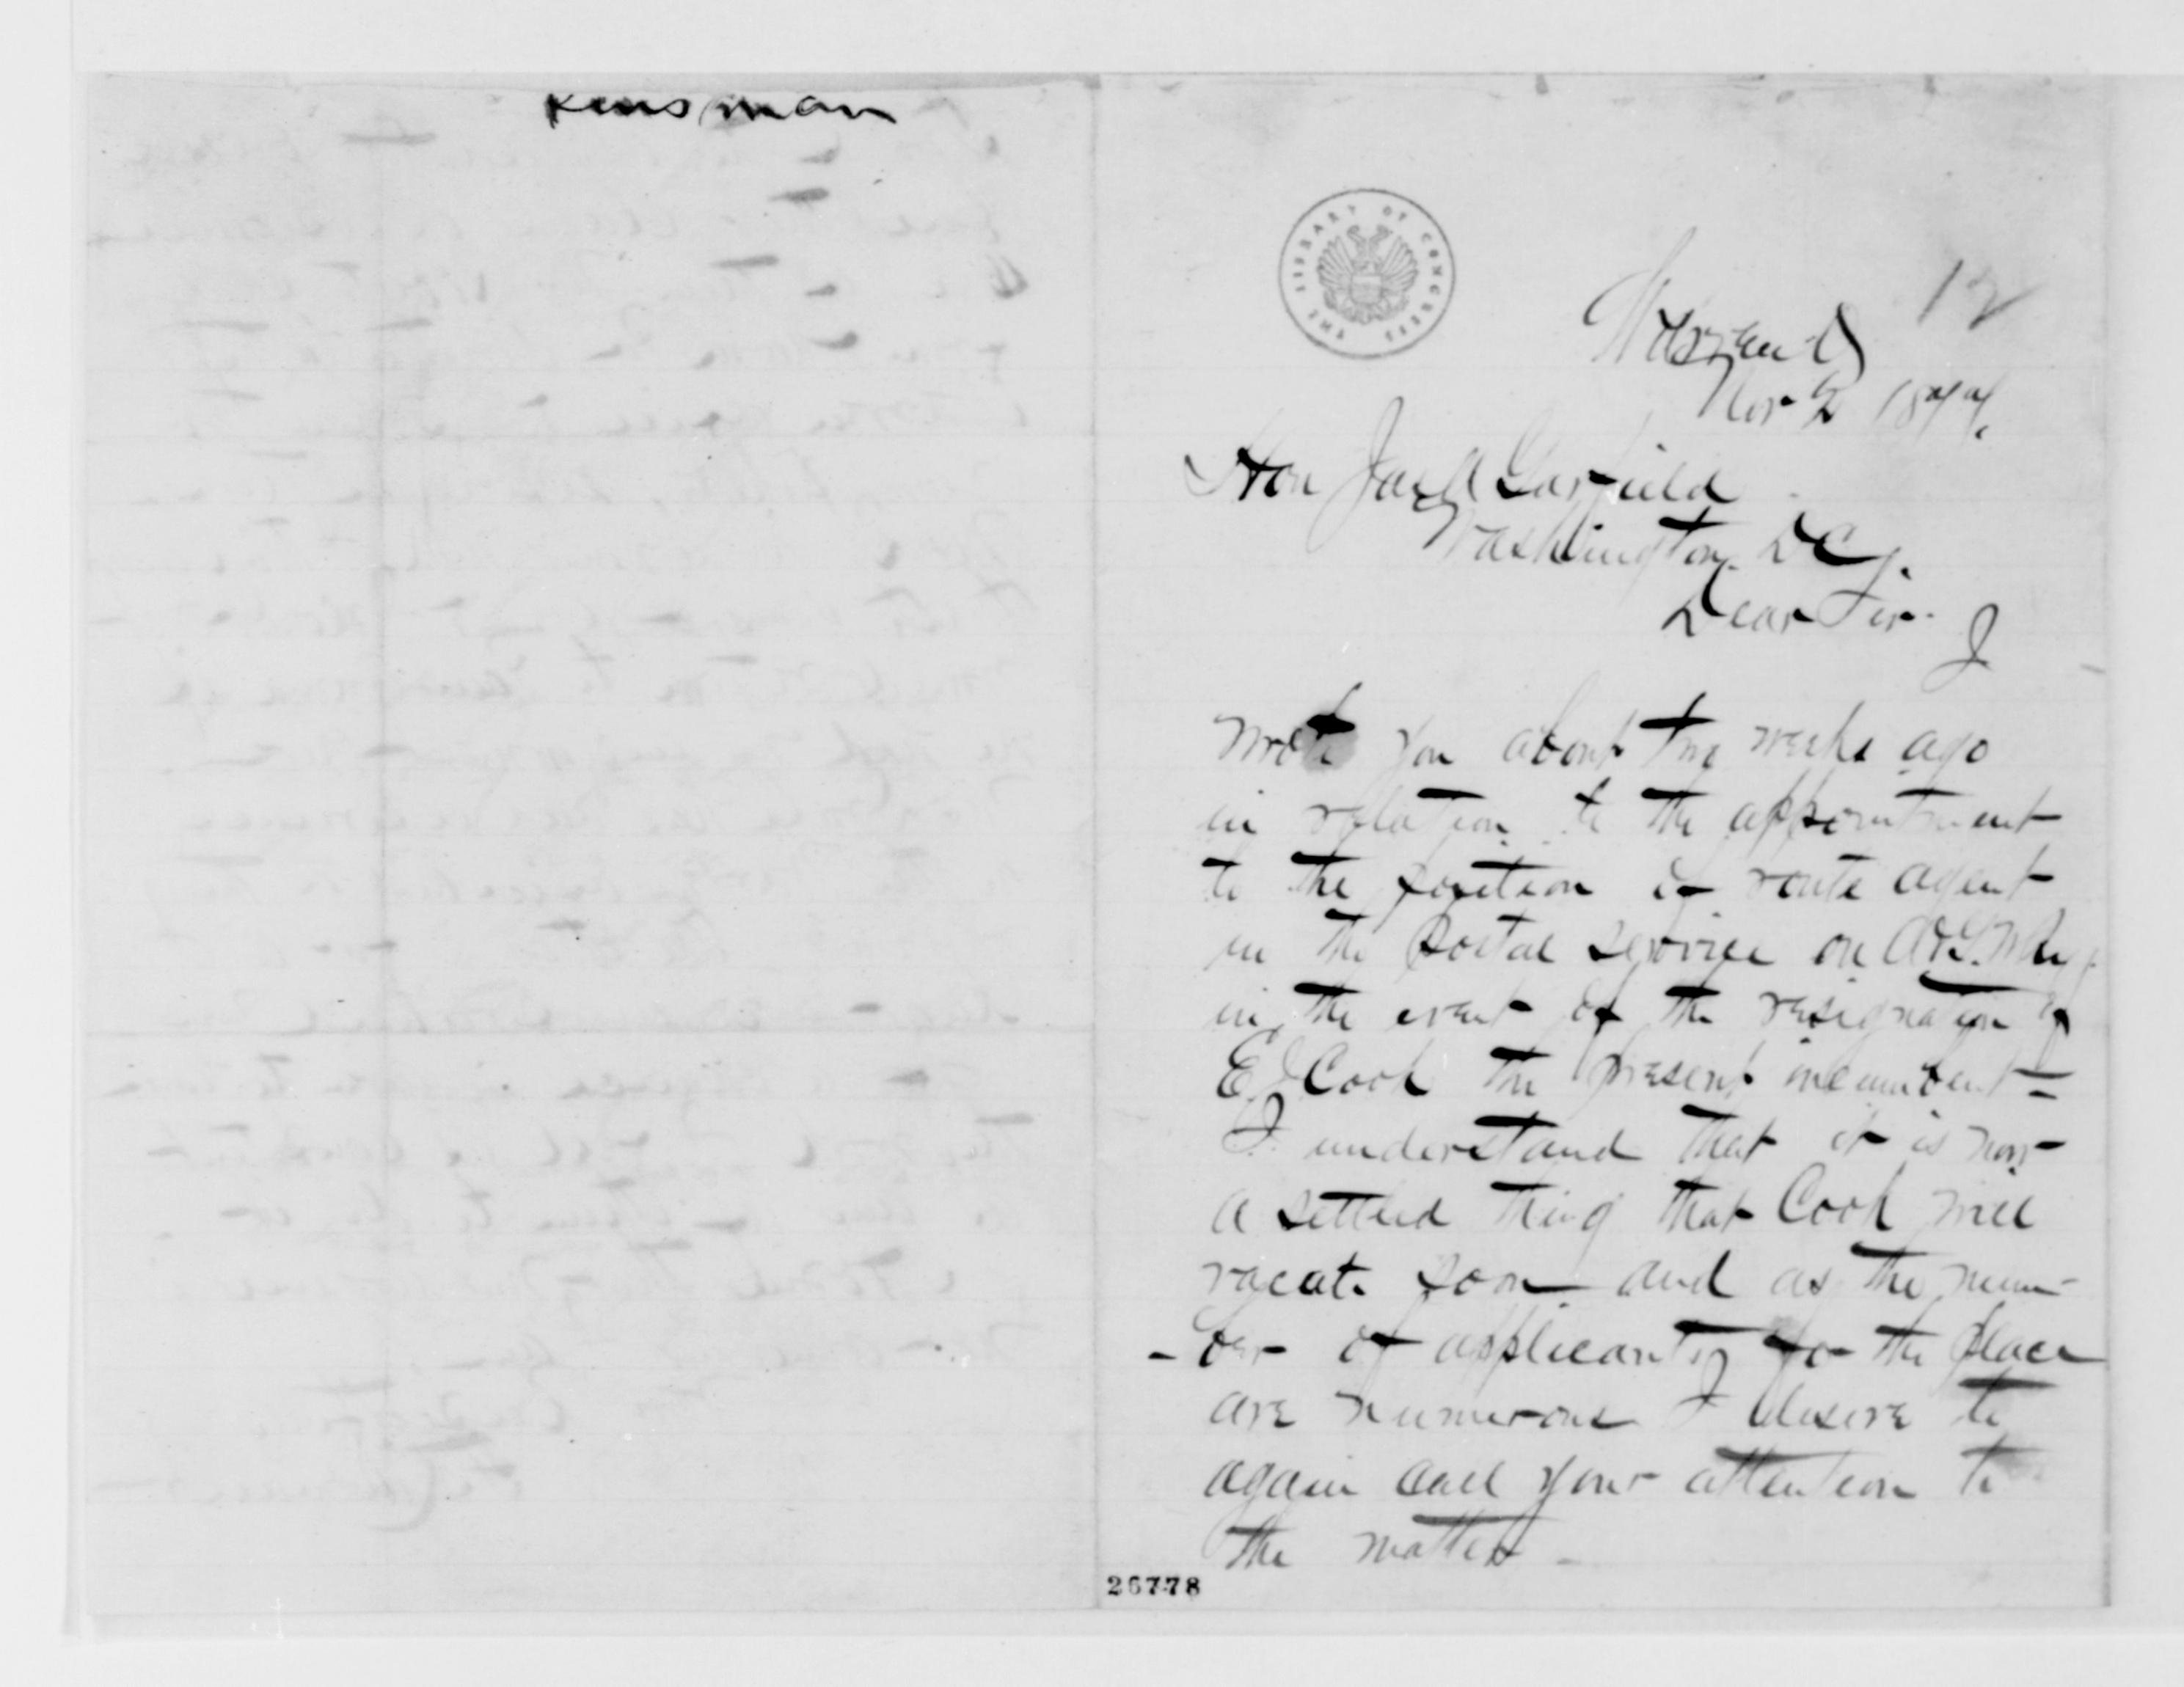 Kinsman
THE LIBRARY OF CONGRESS
12
Warren O
Nov 2 1877.
Hon Jas A Garfield
Washington. D C,.
Dear Sir. I
wrote you about two weeks ago
in relation to the appointment
to the position of route agent
in the postal service on
in the event of the resignation of
E J Cook the present incumbent =
I understand that it is now
a settled thing that Cook will
vacate soon and as the num-
-ber of applicants for the place
are numerous I desire to
again call your attention to
the matter -
26778